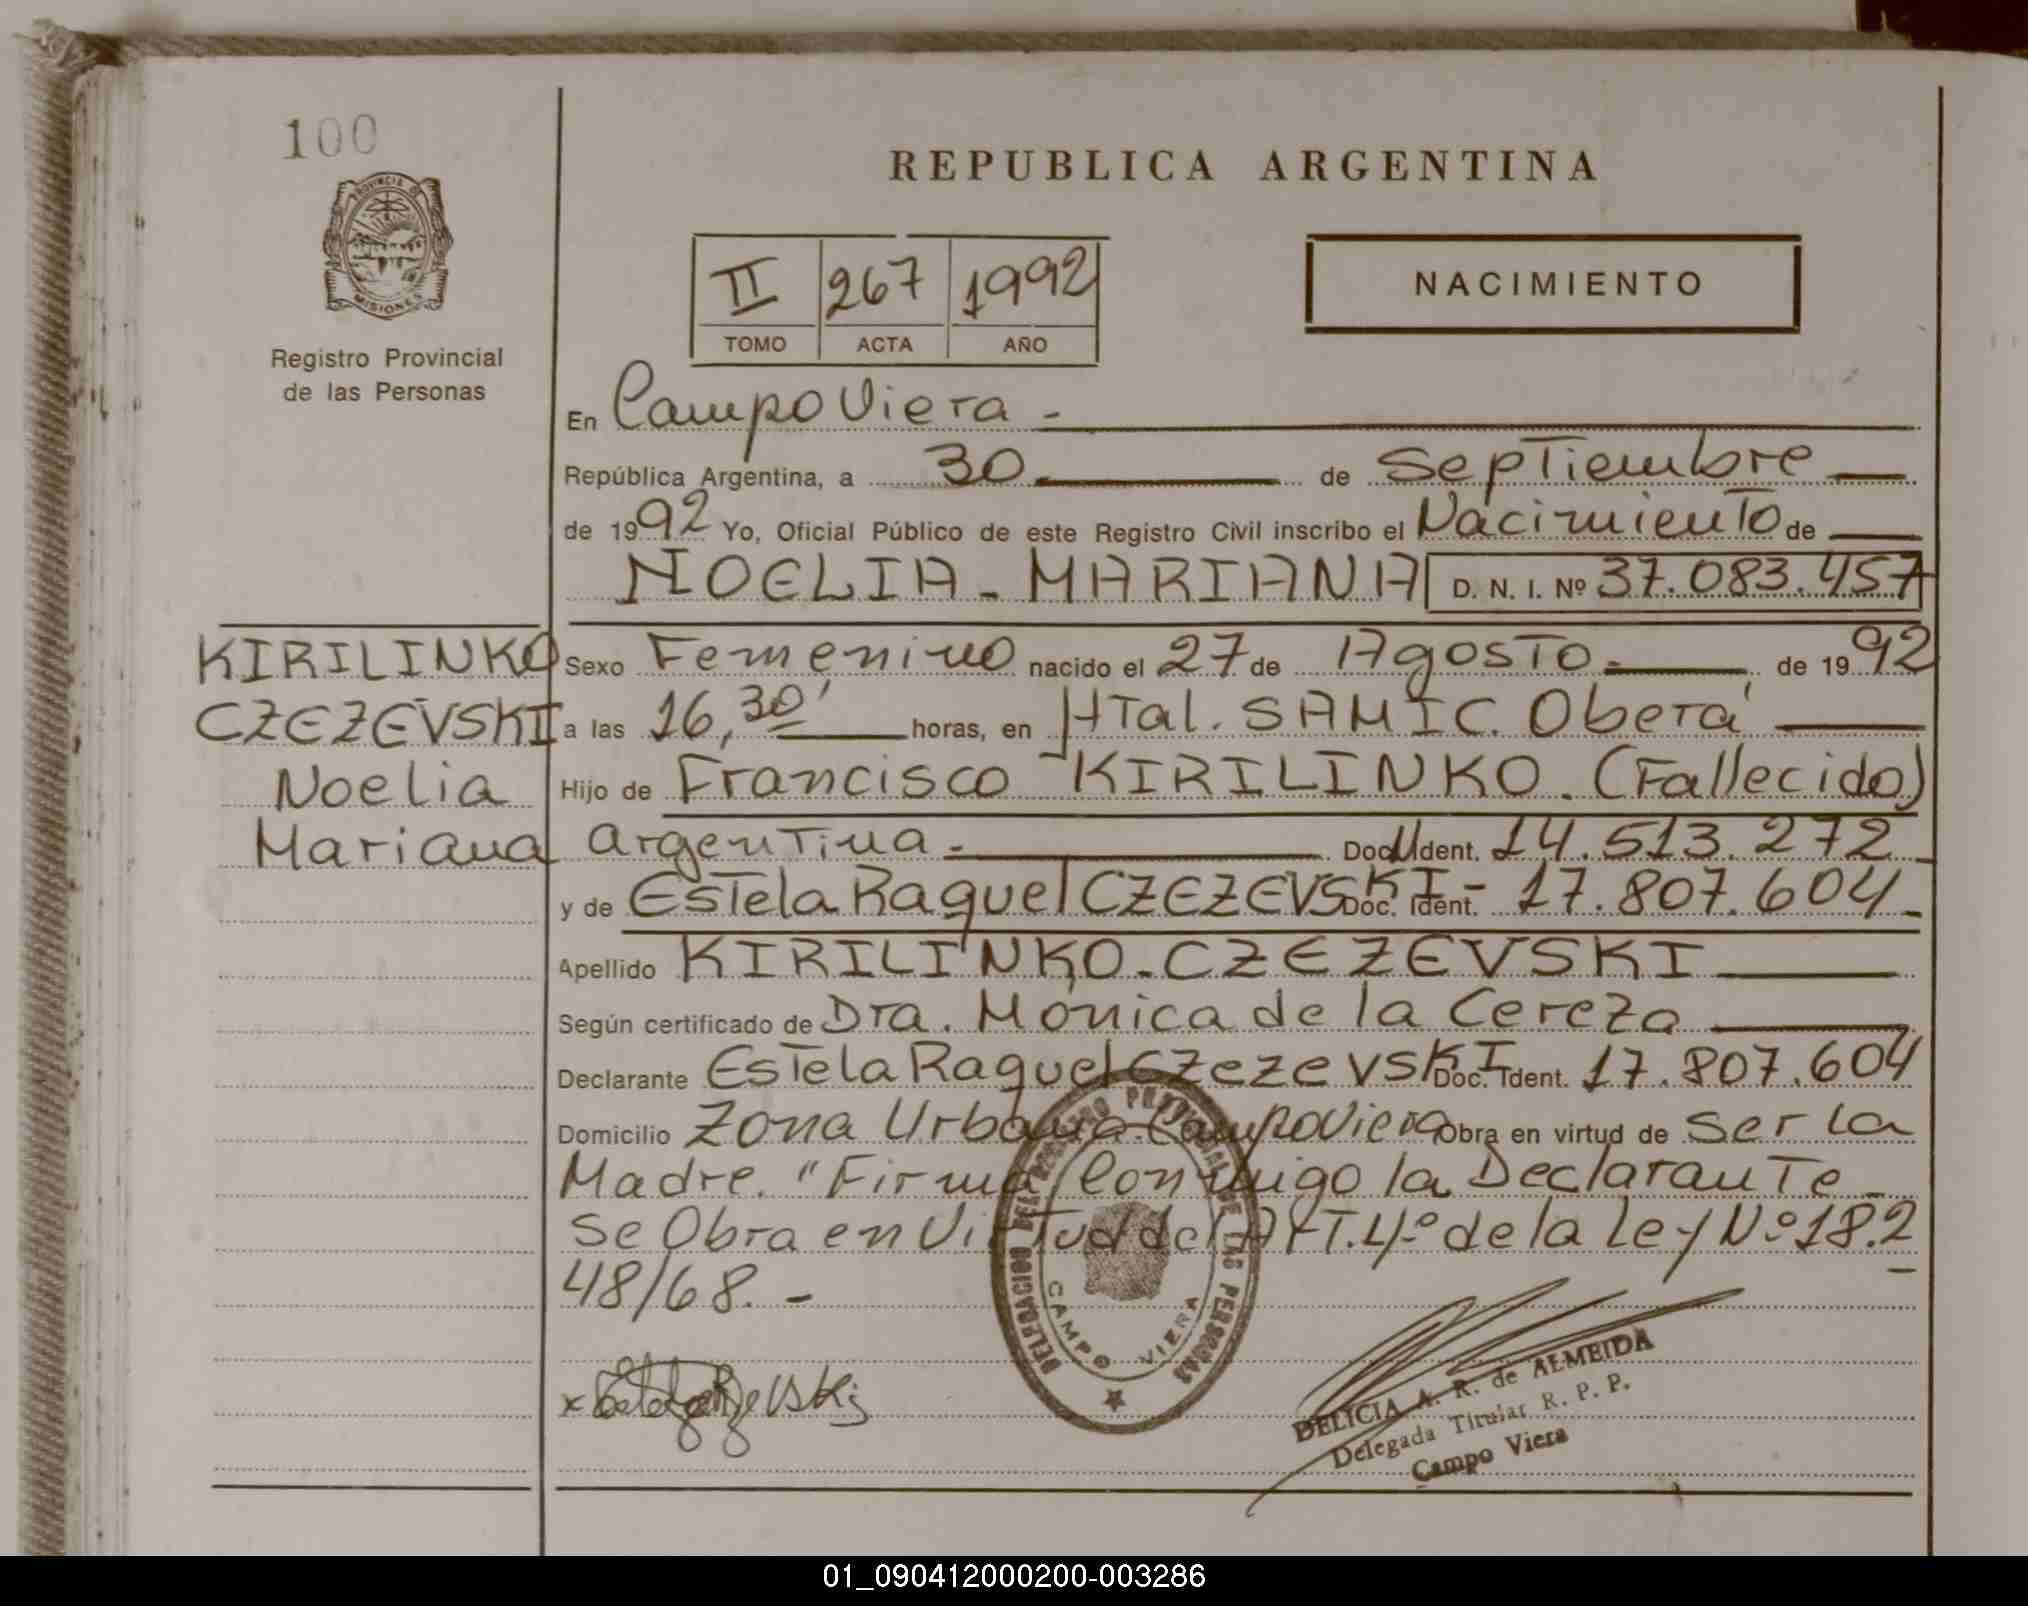 100
PROVINCIA DE
MISIONES
Registro Provincial
de las Personas
REPUBLICA ARGENTINA
II 267 1992
TOMO ACTA AÑO
NACIMIENTO
En Campo Viera -
República Argentina, a 30 de Septiembre
de 1992 Yo, Oficial Público de este Registro Civil inscribo el Nacimiento de
NOELIA - MARIANA D. N. I. Nº 37.083.457
KIRILINKO
CZEZEVSKI
Noelia
Mariana
Sexo Femenino nacido el 27 de Agosto - de 1992
a las 16,30' horas, en HTal. SAMIC. Oberá
Hijo de Francisco KIRILINKO. (Fallecido)
argentina - Doc. Ident. 14.513.272
y de Estela Raquel CZEZEVSKI - Doc. Ident. 17.807.604 -
Apellido KIRILINKO - CZEZEVSKI
Según certificado de Dra. Mónica de la Cereza
Declarante Estela Raquel CZezevsKI Doc. Ident. 17.807.604
Domicilio Zona Urbana - Campo Viera Obra en virtud de ser la
Madre. "Firma Conmigo la Declarante
se Obra en Virtud del ArT. 4º de la Ley Nº 18.2
48/68. -
DELEGACION DEL REGISTRO PROVINCIAL DE LAS PERSONAS
CAMPO VIERA
DELICIA A. R. de ALMEIDA
Delegada Titular R. P. P.
Campo Viera
01_090412000200-003286